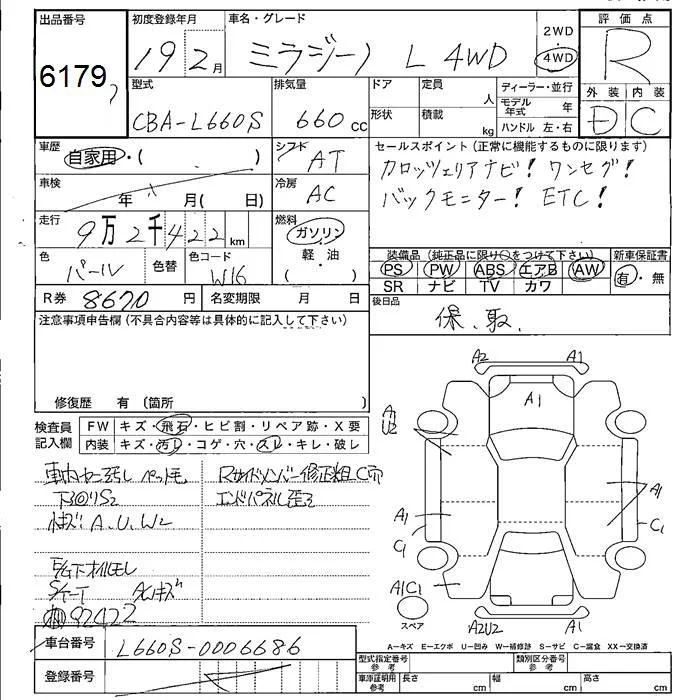 出品番号
6179
初度登録年月
19 2月
車名・グレード
ミラジーノ L 4WD
2WD
・
4WD
評価点
R
外装 内装
D C
型式
CBA-L660S
排気量
660 cc
ドア
形状
定員
人
積載
kg
ディーラー・並行
モデル年式 年
ハンドル 左・右
車歴
自家用・( )
シフト
AT
車検
年 月( 日)
冷房
AC
走行
9万2千422 km
燃料
ガソリン
軽・油
( )
色
パール
色替
色コード
W16
R券 8670 円
名変期限 月 日
セールスポイント(正常に機能するものに限ります)
カロッツェリアナビ! ワンセグ!
バックモニター! ETC!
装備品(純正品に限り○をつけて下さい)
PS PW ABS エアB AW
SR ナビ TV カワ
新車保証書
有・無
後日品
保、取、
注意事項申告欄(不具合内容等は具体的に記入して下さい)
修復歴 有(箇所
検査員記入欄
FW キズ・飛石・ヒビ割・リペア跡・X要
内装 キズ・汚レ・コゲ・穴・スレ・キレ・破レ
車内ヤニ汚し ペット毛
下回りS2
A、U、W2
E/G下オイルモレ
92422
Rサイドメンバー修正粗C穴
エンドパネル歪ミ
A2 A1
A1
A1
U2
A1
C1
A1
C1
A1C1
スペア
A2U2 A1
A―キズ E―エクボ U―凹み W―補修跡 S―サビ C―腐食 XX―交換済
車台番号
L660S-0006686
登録番号
型式指定番号
参考
類別区分番号
参考
車庫証明用
参考
長さ cm
幅 cm
高さ cm